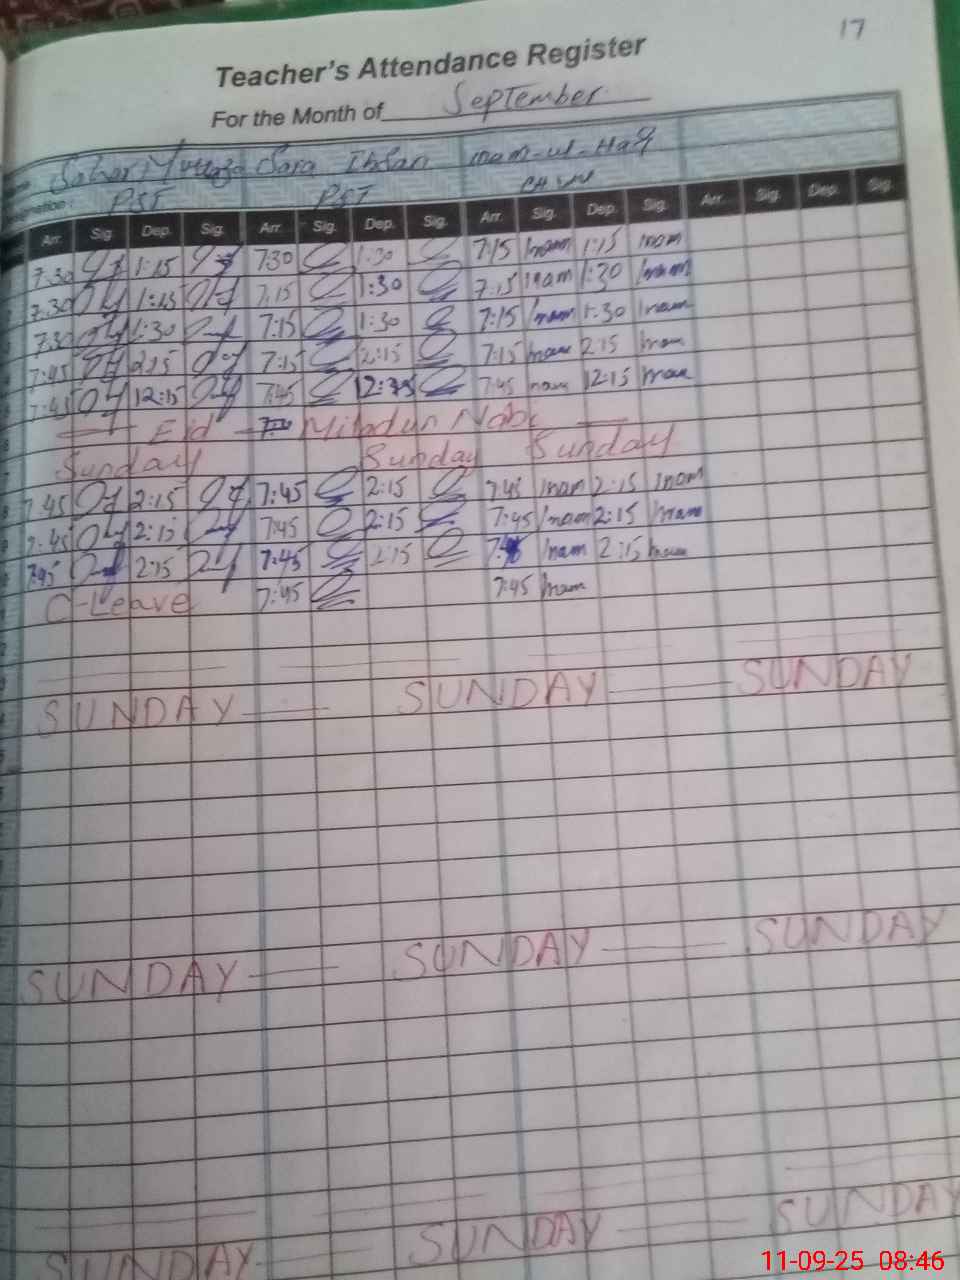 17
Teacher's Attendance Register
For the Month of September
Sara Ihsan Inam-ul-Haq
PST PST
Arr. Sig. Dep. Sig. Arr. Sig. Dep. Sig. Arr. Sig. Dep. Sig. Arr. Sig. Dep. Sig.
7:30 1:15 7:30 1:30 7:15 Inam 1:15 Inam
7:30 1:15 7:15 1:30 7:15 Inam 1:30 Inam
7:30 1:30 7:15 1:30 7:15 Inam 1:30 Inam
7:45 2:15 7:15 2:15 7:15 Inam 2:15 Inam
7:45 12:15 7:45 7:45 Inam 12:15 Inam
Eid Milad un Nabi
Sunday Sunday Sunday
7:45 2:15 7:45 2:15 7:45 Inam 2:15 Inam
7:45 2:15 7:45 2:15 7:45 Inam 2:15 Inam
7:45 2:15 7:45 2:15 Inam 2:15 Inam
C-Leave 7:45 7:45 Inam
SUNDAY SUNDAY SUNDAY
SUNDAY SUNDAY SUNDAY
SUNDAY SUNDAY SUNDAY
11-09-25 08:46